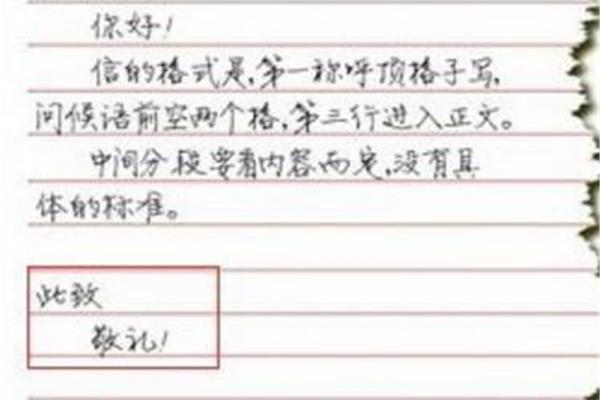 你好！
信的格式是，第一称呼顶格子写，
问候语前空两个格，第三行进入正文。
中间分段要看内容而定，没有具
体的标准。
此致
敬礼！